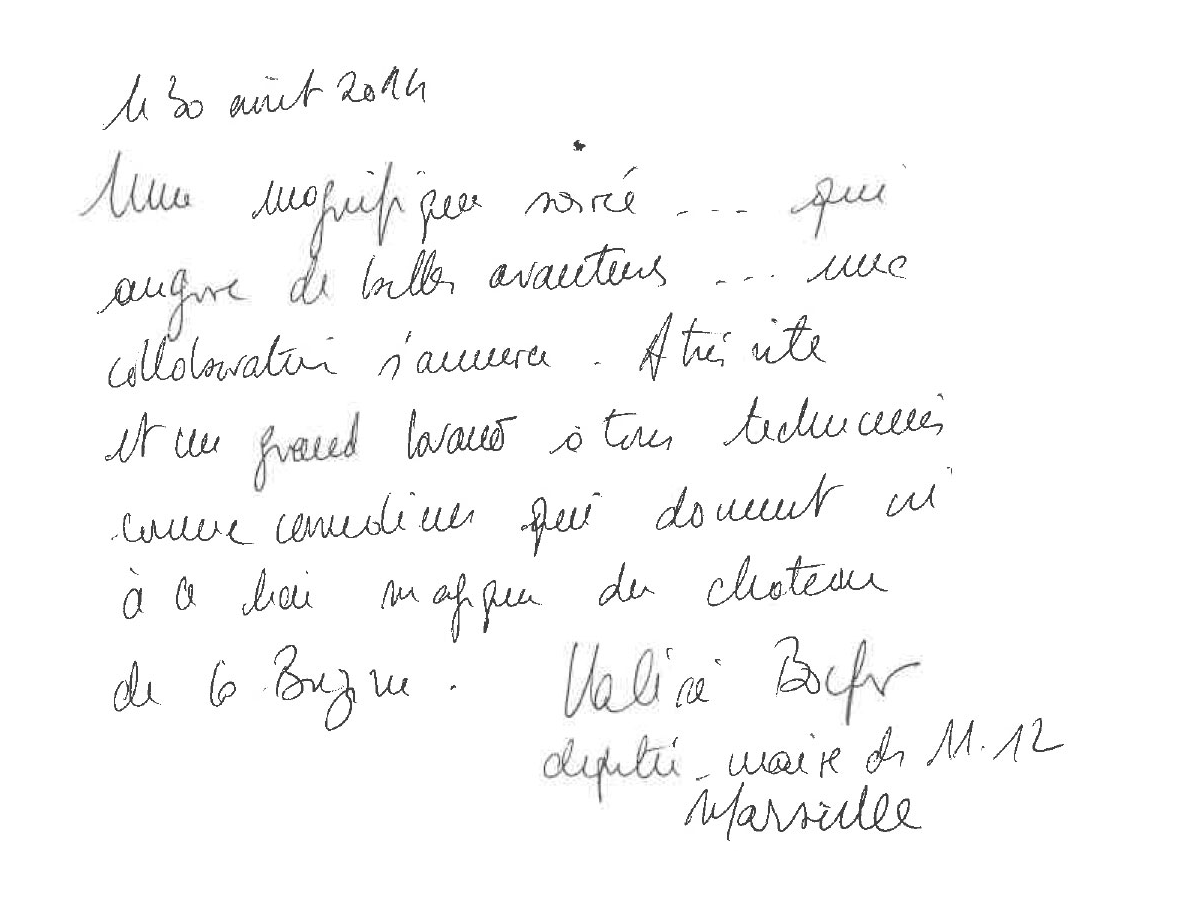 le 30 août 2014
Une magnifique soirée ... qui
augure de belles aventures ... une
collaboration s'annonce. A très vite
et un grand bravo à tous techniciens
comme comédiens qui donnent vie
à ce lieu magique du château
de la Buzine. Valérie Boyer
député-maire des 11.12
Marseille